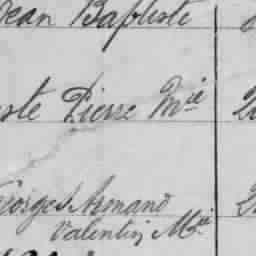 Jean Baptiste
Pierre Mie
Georges Armand
Valentin Mie